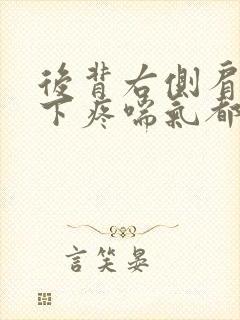 後背右側肩
下疼喘氣都
言笑晏